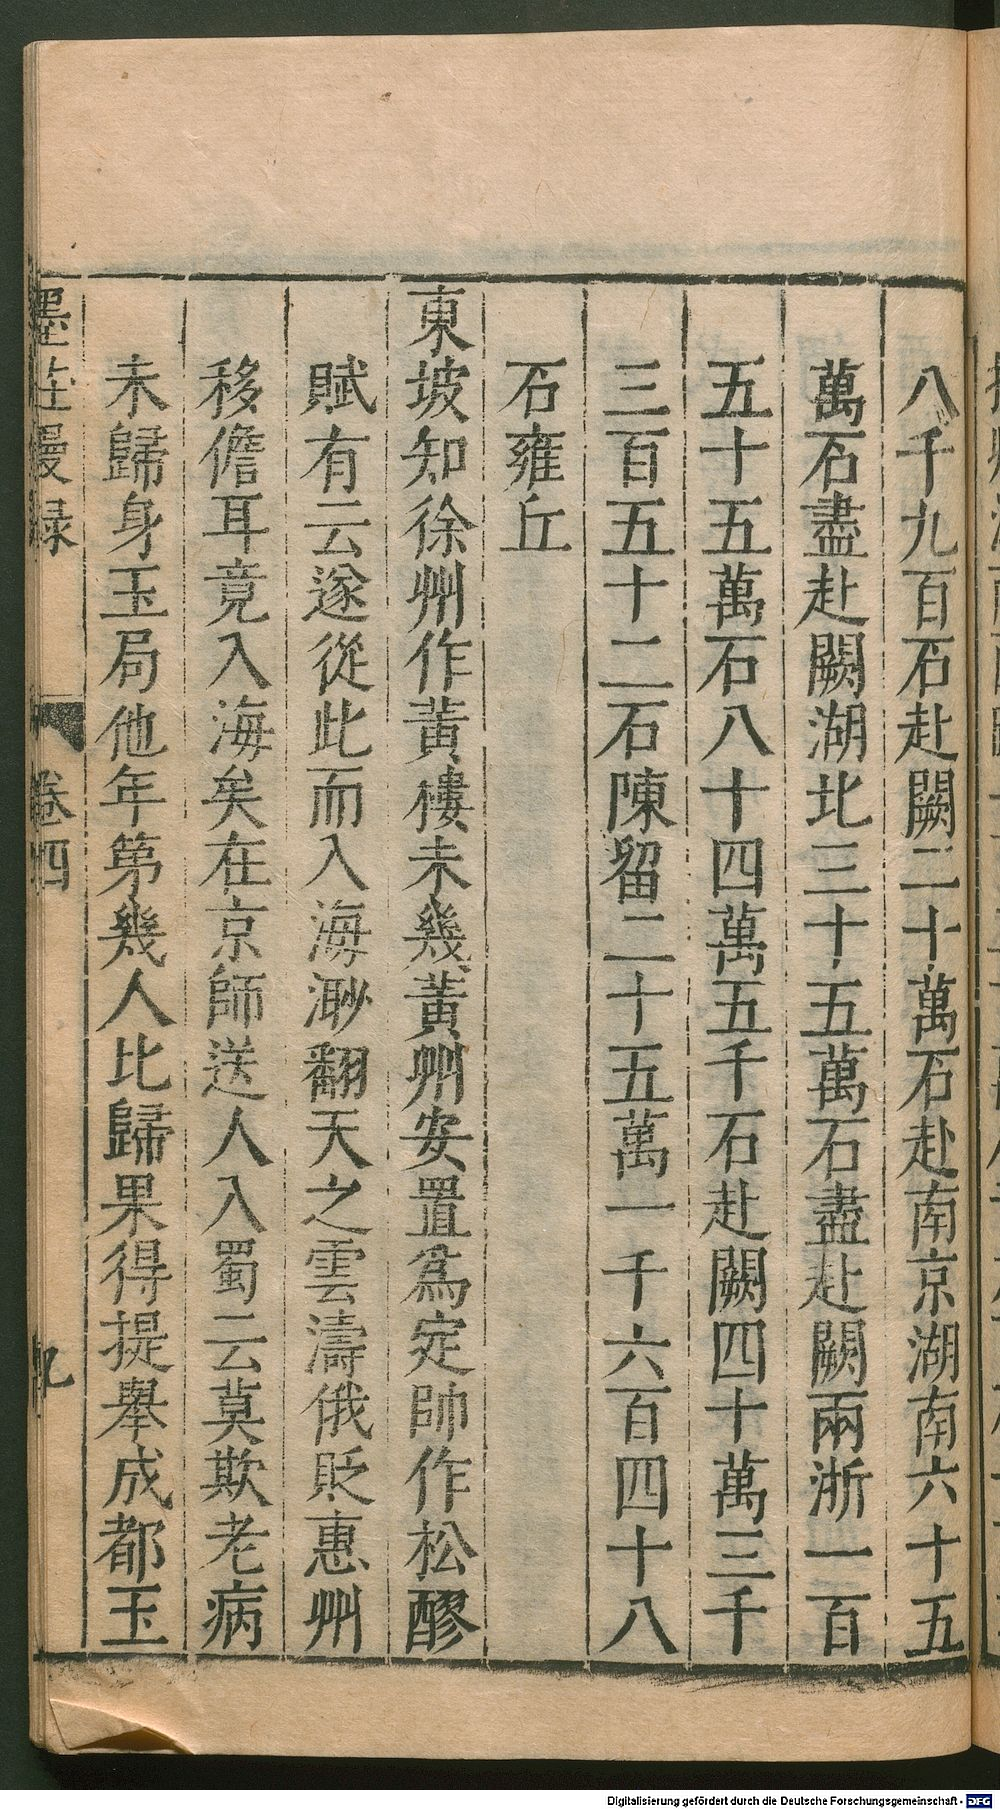 八千九百石赴闕二十萬石赴南京湖南六十五
萬石盡赴闕湖北三十五萬石盡赴闕兩浙一百
五十五萬石八十四萬五千石赴闕四十萬三千
三百五十二石陳留二十五萬一千六百四十八
石雍丘
東坡知徐州作黃樓未幾黃州安置爲定帥作松醪
賦有云遂從此而入海渺翻天之雲濤俄貶惠州
移儋耳竟入海矣在京師送人入蜀云莫欺老病
未歸身玉局他年第幾人比歸果得提舉成都玉
墨莊漫録 卷四 九
Digitalisierung gefördert durch die Deutsche Forschungsgemeinschaft - DFG